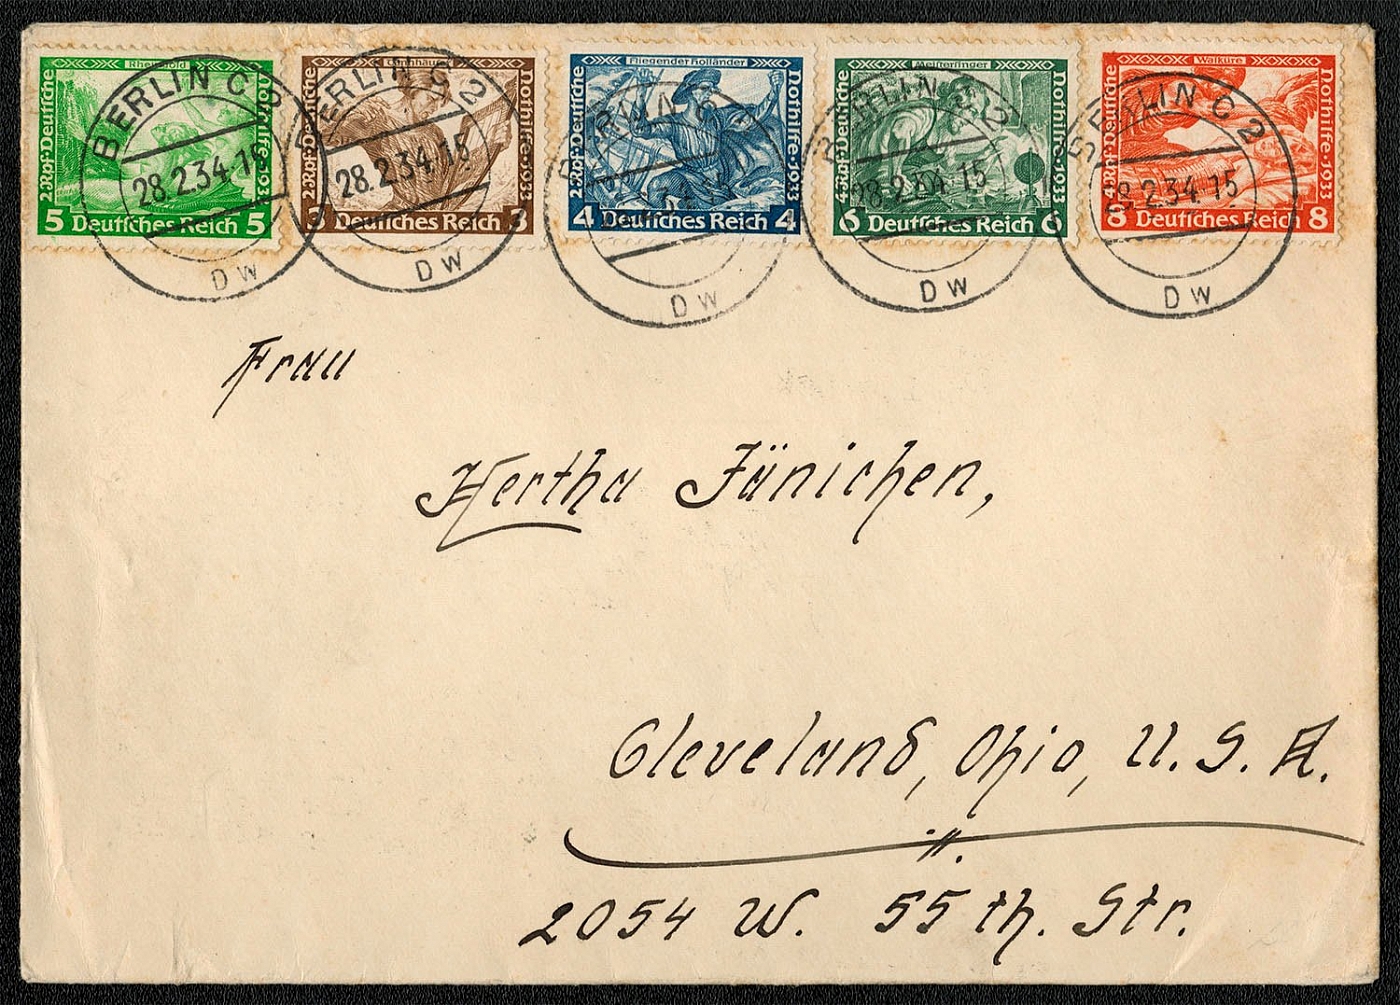 Rheingold
2 Rpf · Deutsche
Nothilfe · 1933
5 Deutsches Reich 5
BERLIN C 2
28.2.34.-15
DW
Tannhäuser
2 Rpf · Deutsche
Nothilfe · 1933
3 Deutsches Reich 3
BERLIN C 2
28.2.34.-15
DW
Fliegender Holländer
2 Rpf · Deutsche
Nothilfe · 1933
4 Deutsches Reich 4
DW
Meistersinger
4 Rpf · Deutsche
Nothilfe · 1933
6 Deutsches Reich 6
BERLIN C 2
28.2.34.-15
DW
Walküre
4 Rpf · Deutsche
Nothilfe · 1933
8 Deutsches Reich 8
BERLIN C 2
28.2.34.-15
DW
Frau
Hertha Jänichen,
Cleveland, Ohio, U. S. A.
2054 W. 55 th. Str.